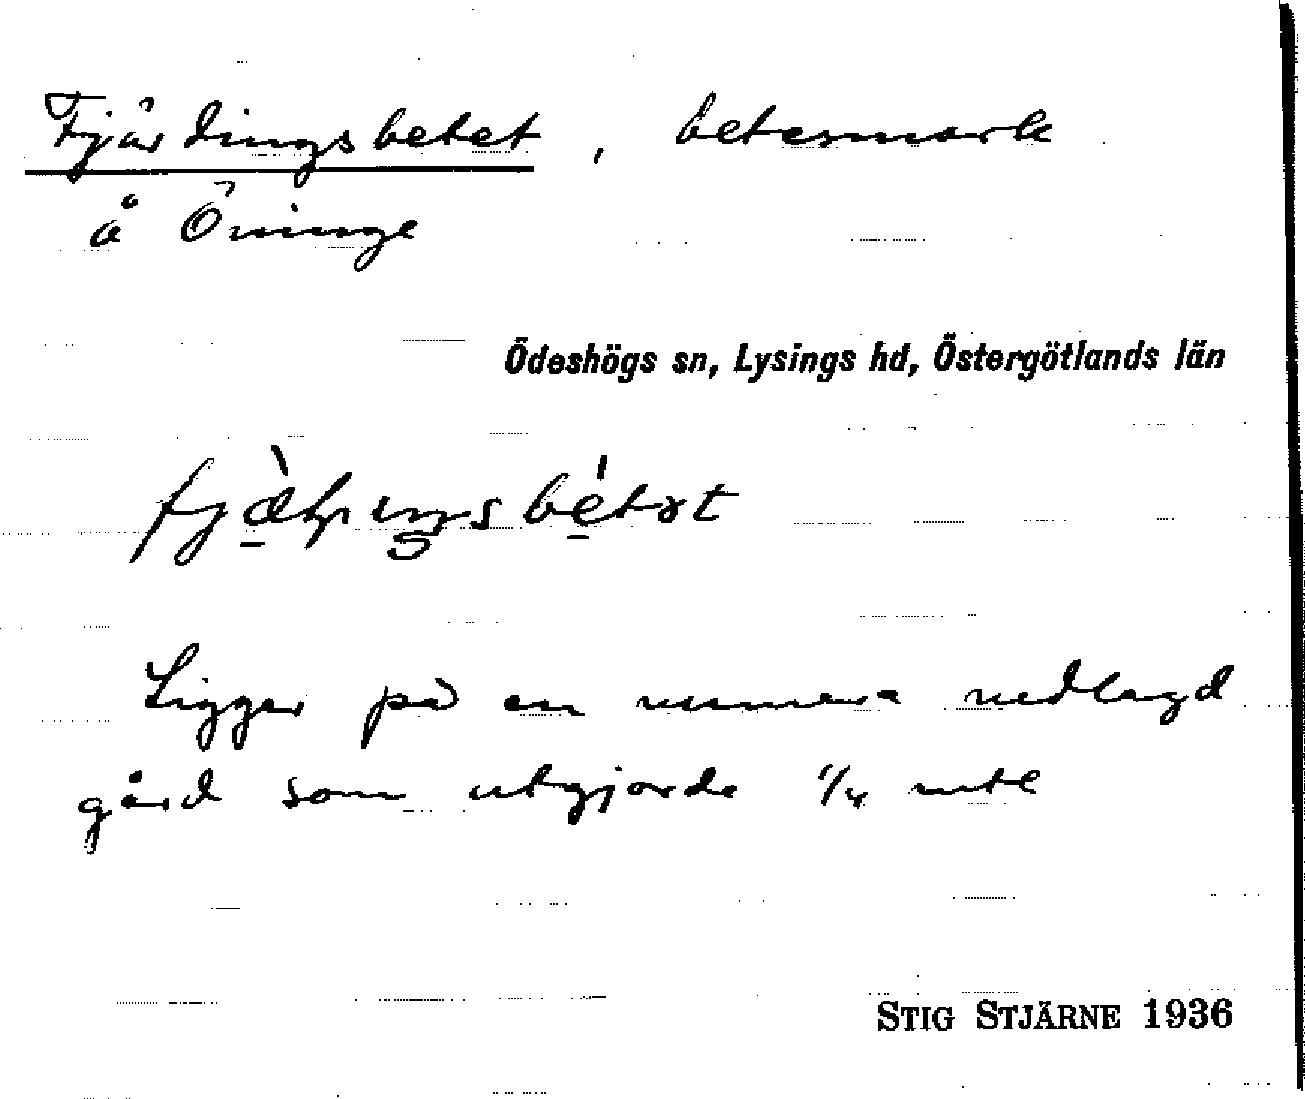 Fjärdingsbetet, betesmark
å Öninge
Ödeshögs sn, Lysings hd, Östergötlands län
Ligger på en numera nedlagd
gård som utgjorde 1/4 mtl
STIG STJÄRNE 1936